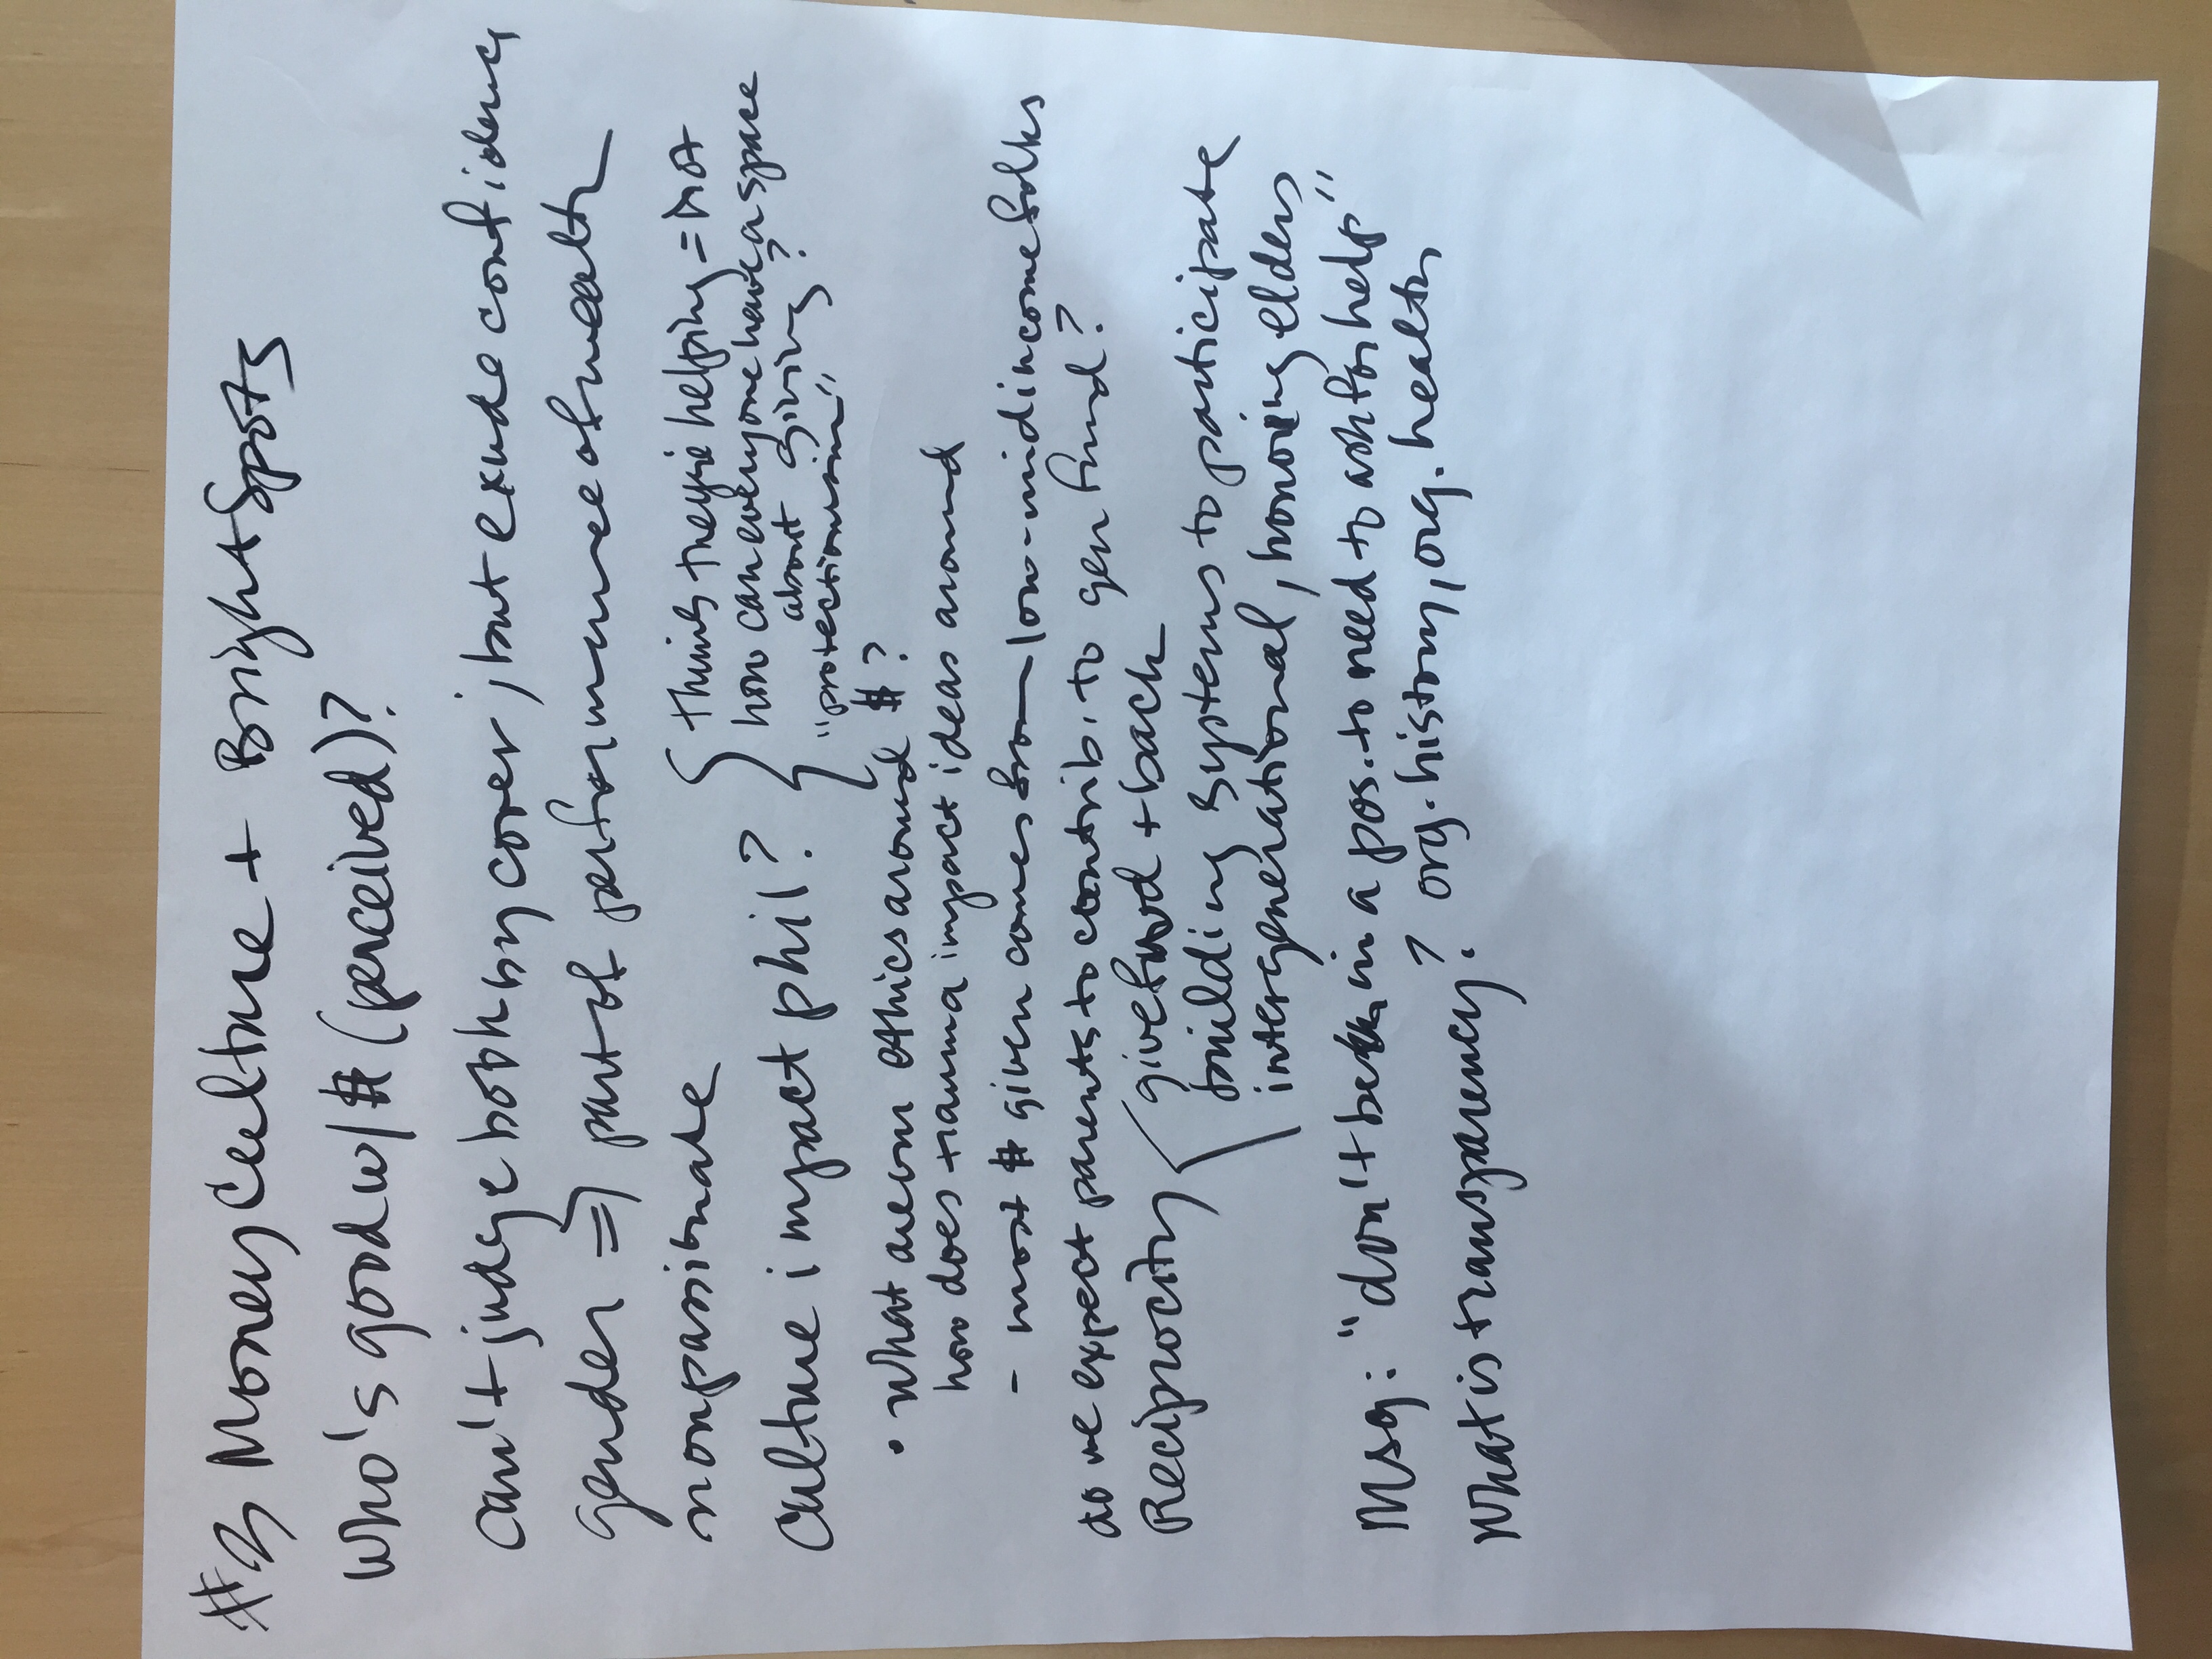 #3 Money Culture + Bright Spots
Who's good w/ $ (perceived)?
Can't judge book by cover; but exude confidence
gender => part of performance of wealth
nonpassionate
Culture impact phil?
thinks they're helping = not
how can everyone have a space
about giving?
"protectionism"
• What are our ethics around $?
how does trauma impact ideas around
- most $ given comes from low-mid income folks
do we expect parents to contrib. to gen fund?
Reciprocity
give fwd + back
building systems to participate
intergenerational, honoring elders
Msg: "don't be in a pos. to need to ask for help"
What is transparency? org. history, org. health